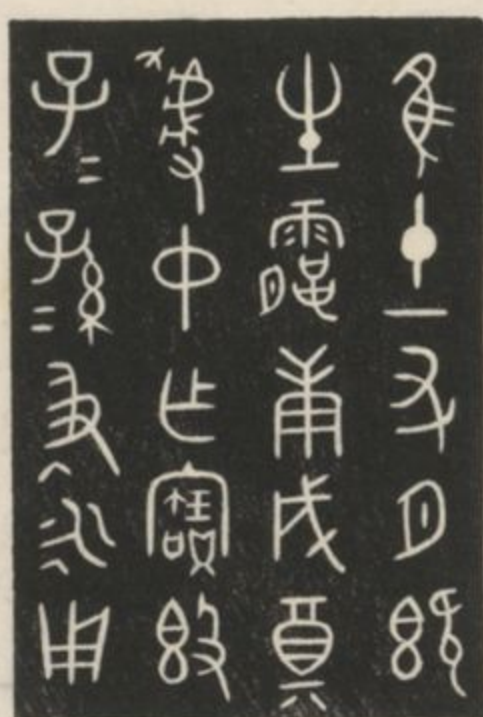 隹十一又月既
生霸庚戌奠
虢中乍寶𣪘
子=孫=彶永用